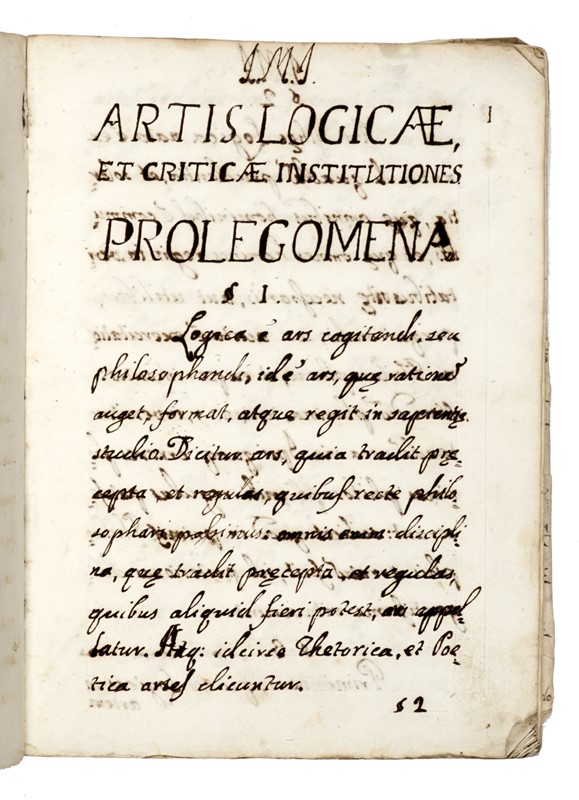 J.M.J.
1
ARTIS LOGICÆ,
ET CRITICÆ INSTITUTIONES
PROLEGOMENA
§ 1
Logica ẽ ars cogitandi, seu
philosophandi, id ẽ ars, quę rationẽ
auget, format, atque regit in sapientię
studio. Dicitur ars, quia tradit prę-
cepta, et regulas, quibus recte philo
sophari possimus: omnis enim discipli-
na, quę tradit pręcepta, et regulas,
quibus aliquid fieri potest, ars appel-
latur. Atq: idcirco Rhetorica, et Poe-
tica artes dicuntur.
§ 2